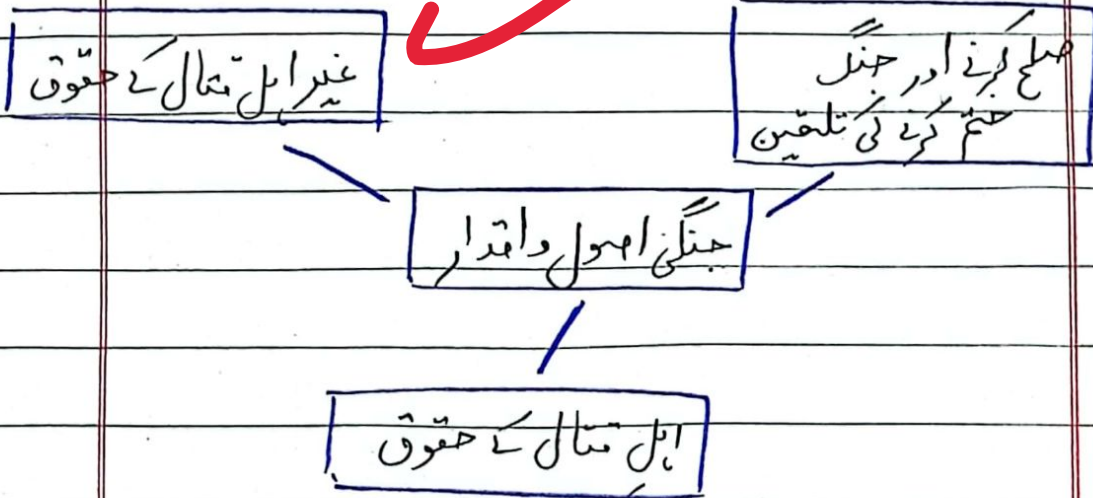 صلح کرنے اور جنگ
ختم کرنے کی تلقین
غیر اہل قتال کے حقوق
جنگی اصول و اقدار
اہل قتال کے حقوق